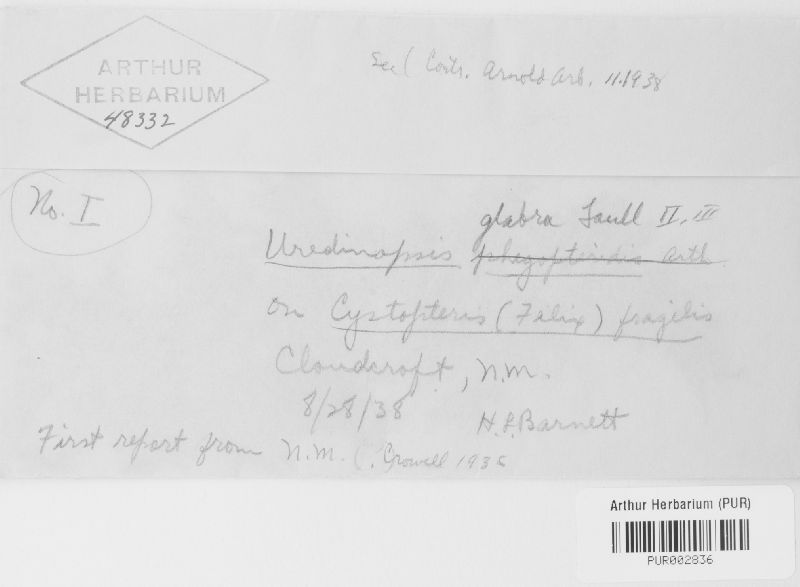 ARTHUR
HERBARIUM
48332
See ( Contr. Arnold Arb. 11. 1938
No. I
glabra Faull II, III
Uredinopsis phegopteridis Arth
on Cystopteris (Filix) fragilis
Cloudcroft, N.M.
8/28/38 H.L. Barnett
First report from N.M. (. Crowell
Arthur Herbarium (PUR)
PUR002836